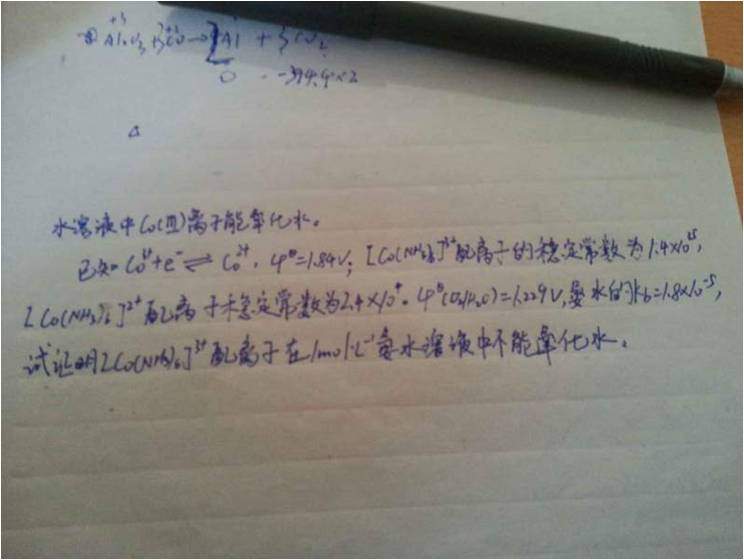 Al₂O₃ + 3CO → 2Al + 3CO₂
0 -394.4×2
水溶液中Co(Ⅲ)离子能氧化水。
已知 Co³⁺+e⁻ ⇌ Co²⁺, φ^θ=1.84V; [Co(NH₃)₆]³⁺配离子的稳定常数为1.4×10³⁵,
[Co(NH₃)₆]²⁺配离子 稳定常数为2.4×10⁴。φ^θ(O₂/H₂O)=1.229V, 氨水的kb=1.8×10⁻⁵,
试证明[Co(NH₃)₆]³⁺配离子在1mol·L⁻¹氨水溶液中不能氧化水。